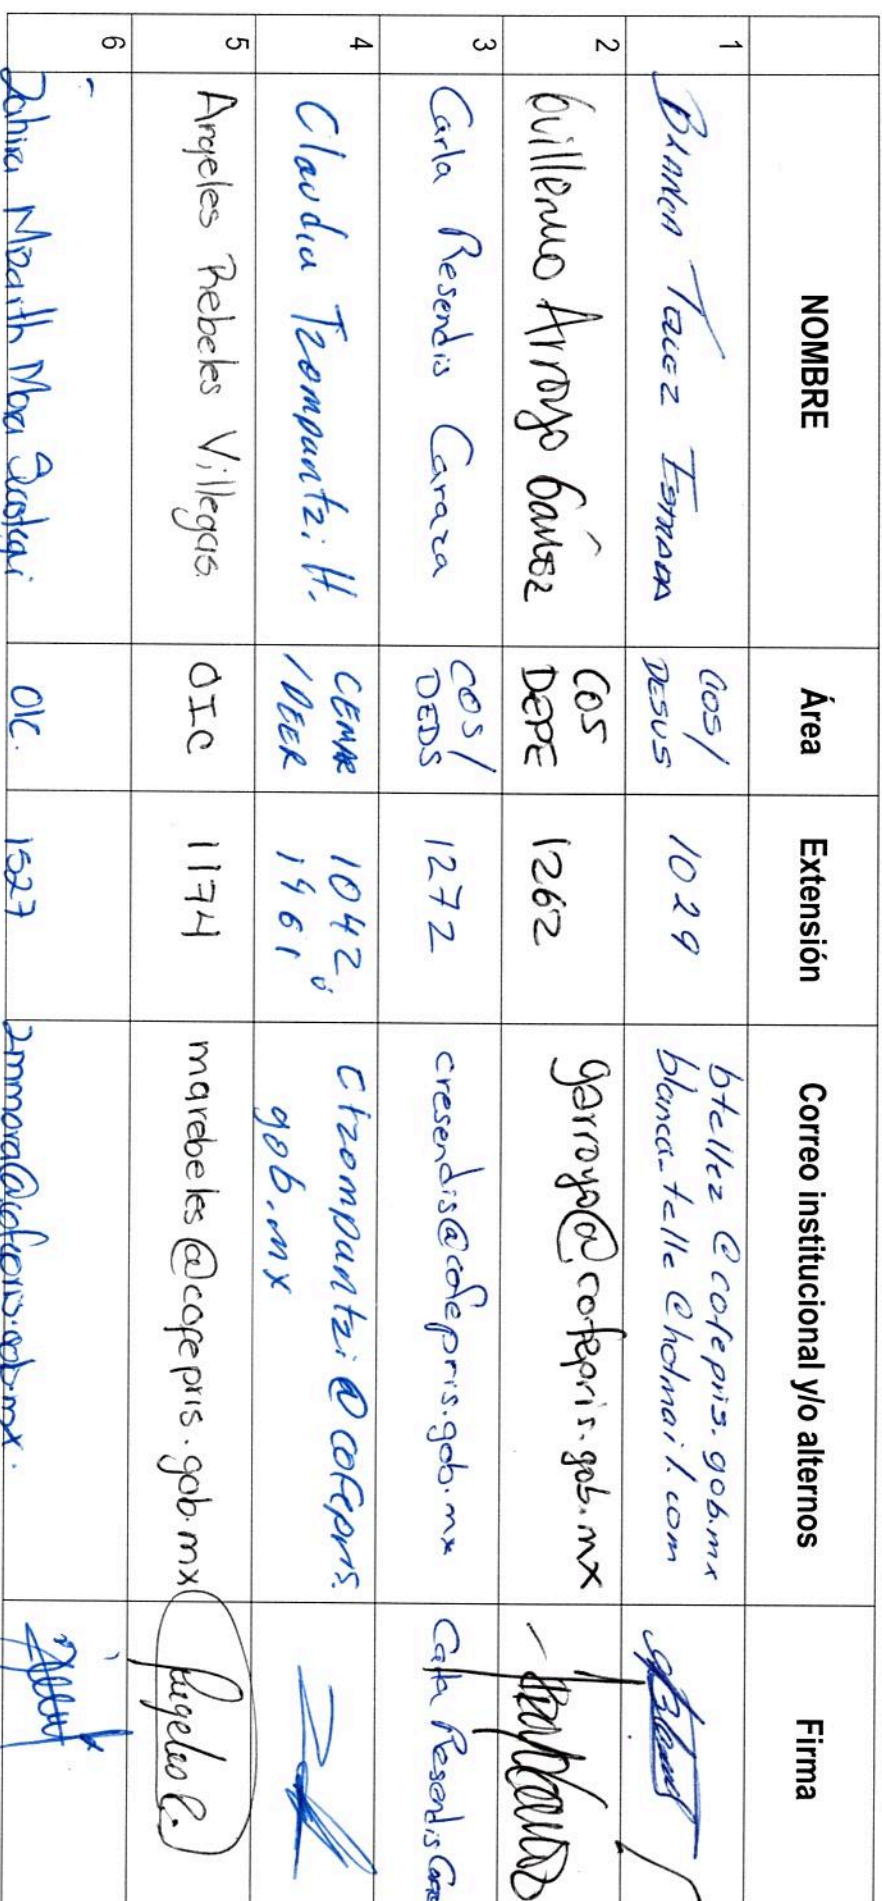 NOMBRE Área Extensión Correo institucional y/o alternos Firma
1 BLANCA TELLEZ ESTRADA COS/ DESUS 1029 btellez@cofepris.gob.mx
blanca_telle@hotmail.com
2 Guillermo Arroyo COS DEPE 1262 garroyo@cofepris.gob.mx
3 Carla Resendis Caraza COS/ DEDS 1272 cresendis@cofepris.gob.mx Carla Resendis
4 Claudia Tzompantzi H. CEMAR /DEER 1042 ó 1461 ctzompantzi@cofepris.
gob.mx
5 Angeles Rebeles Villegas. OIC 1174 marebeles@cofepris.gob.mx Angeles R.
6 Mora OIC. 1527 zmmora@cofepris.gob.mx.